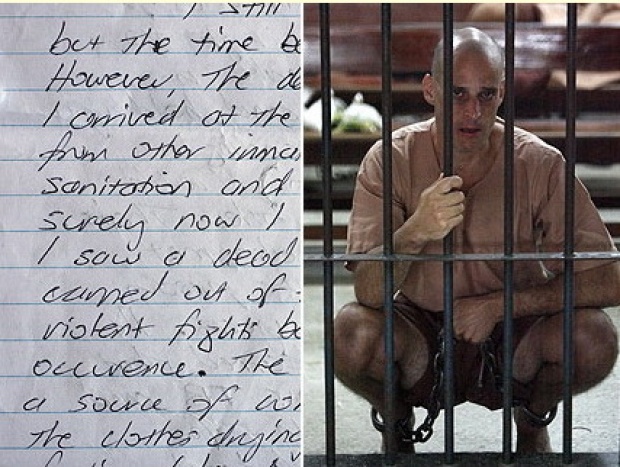 I still
but the time be
However, the de
I arrived at the
from other inma
sanitation and
surely now I
I saw a dead
carried out of
violent fights be
occurence. The
a source of con
the clothes drying